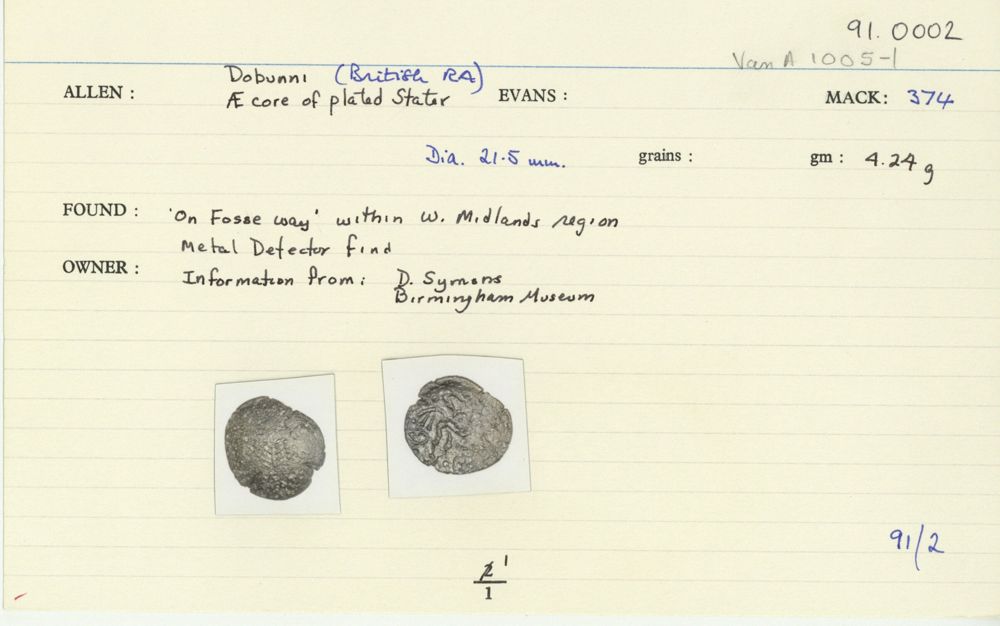 91.0002
Van A 1005-1
Dobunni (British RA)
ALLEN : Æ core of plated Stater EVANS : MACK: 374
Dia. 21.5 mm. grains : gm : 4.24 g
FOUND : 'On Fosse way' within W. Midlands region
Metal Detector find
OWNER : Information from: D. Symons
Birmingham Museum
91/2
2 1
1